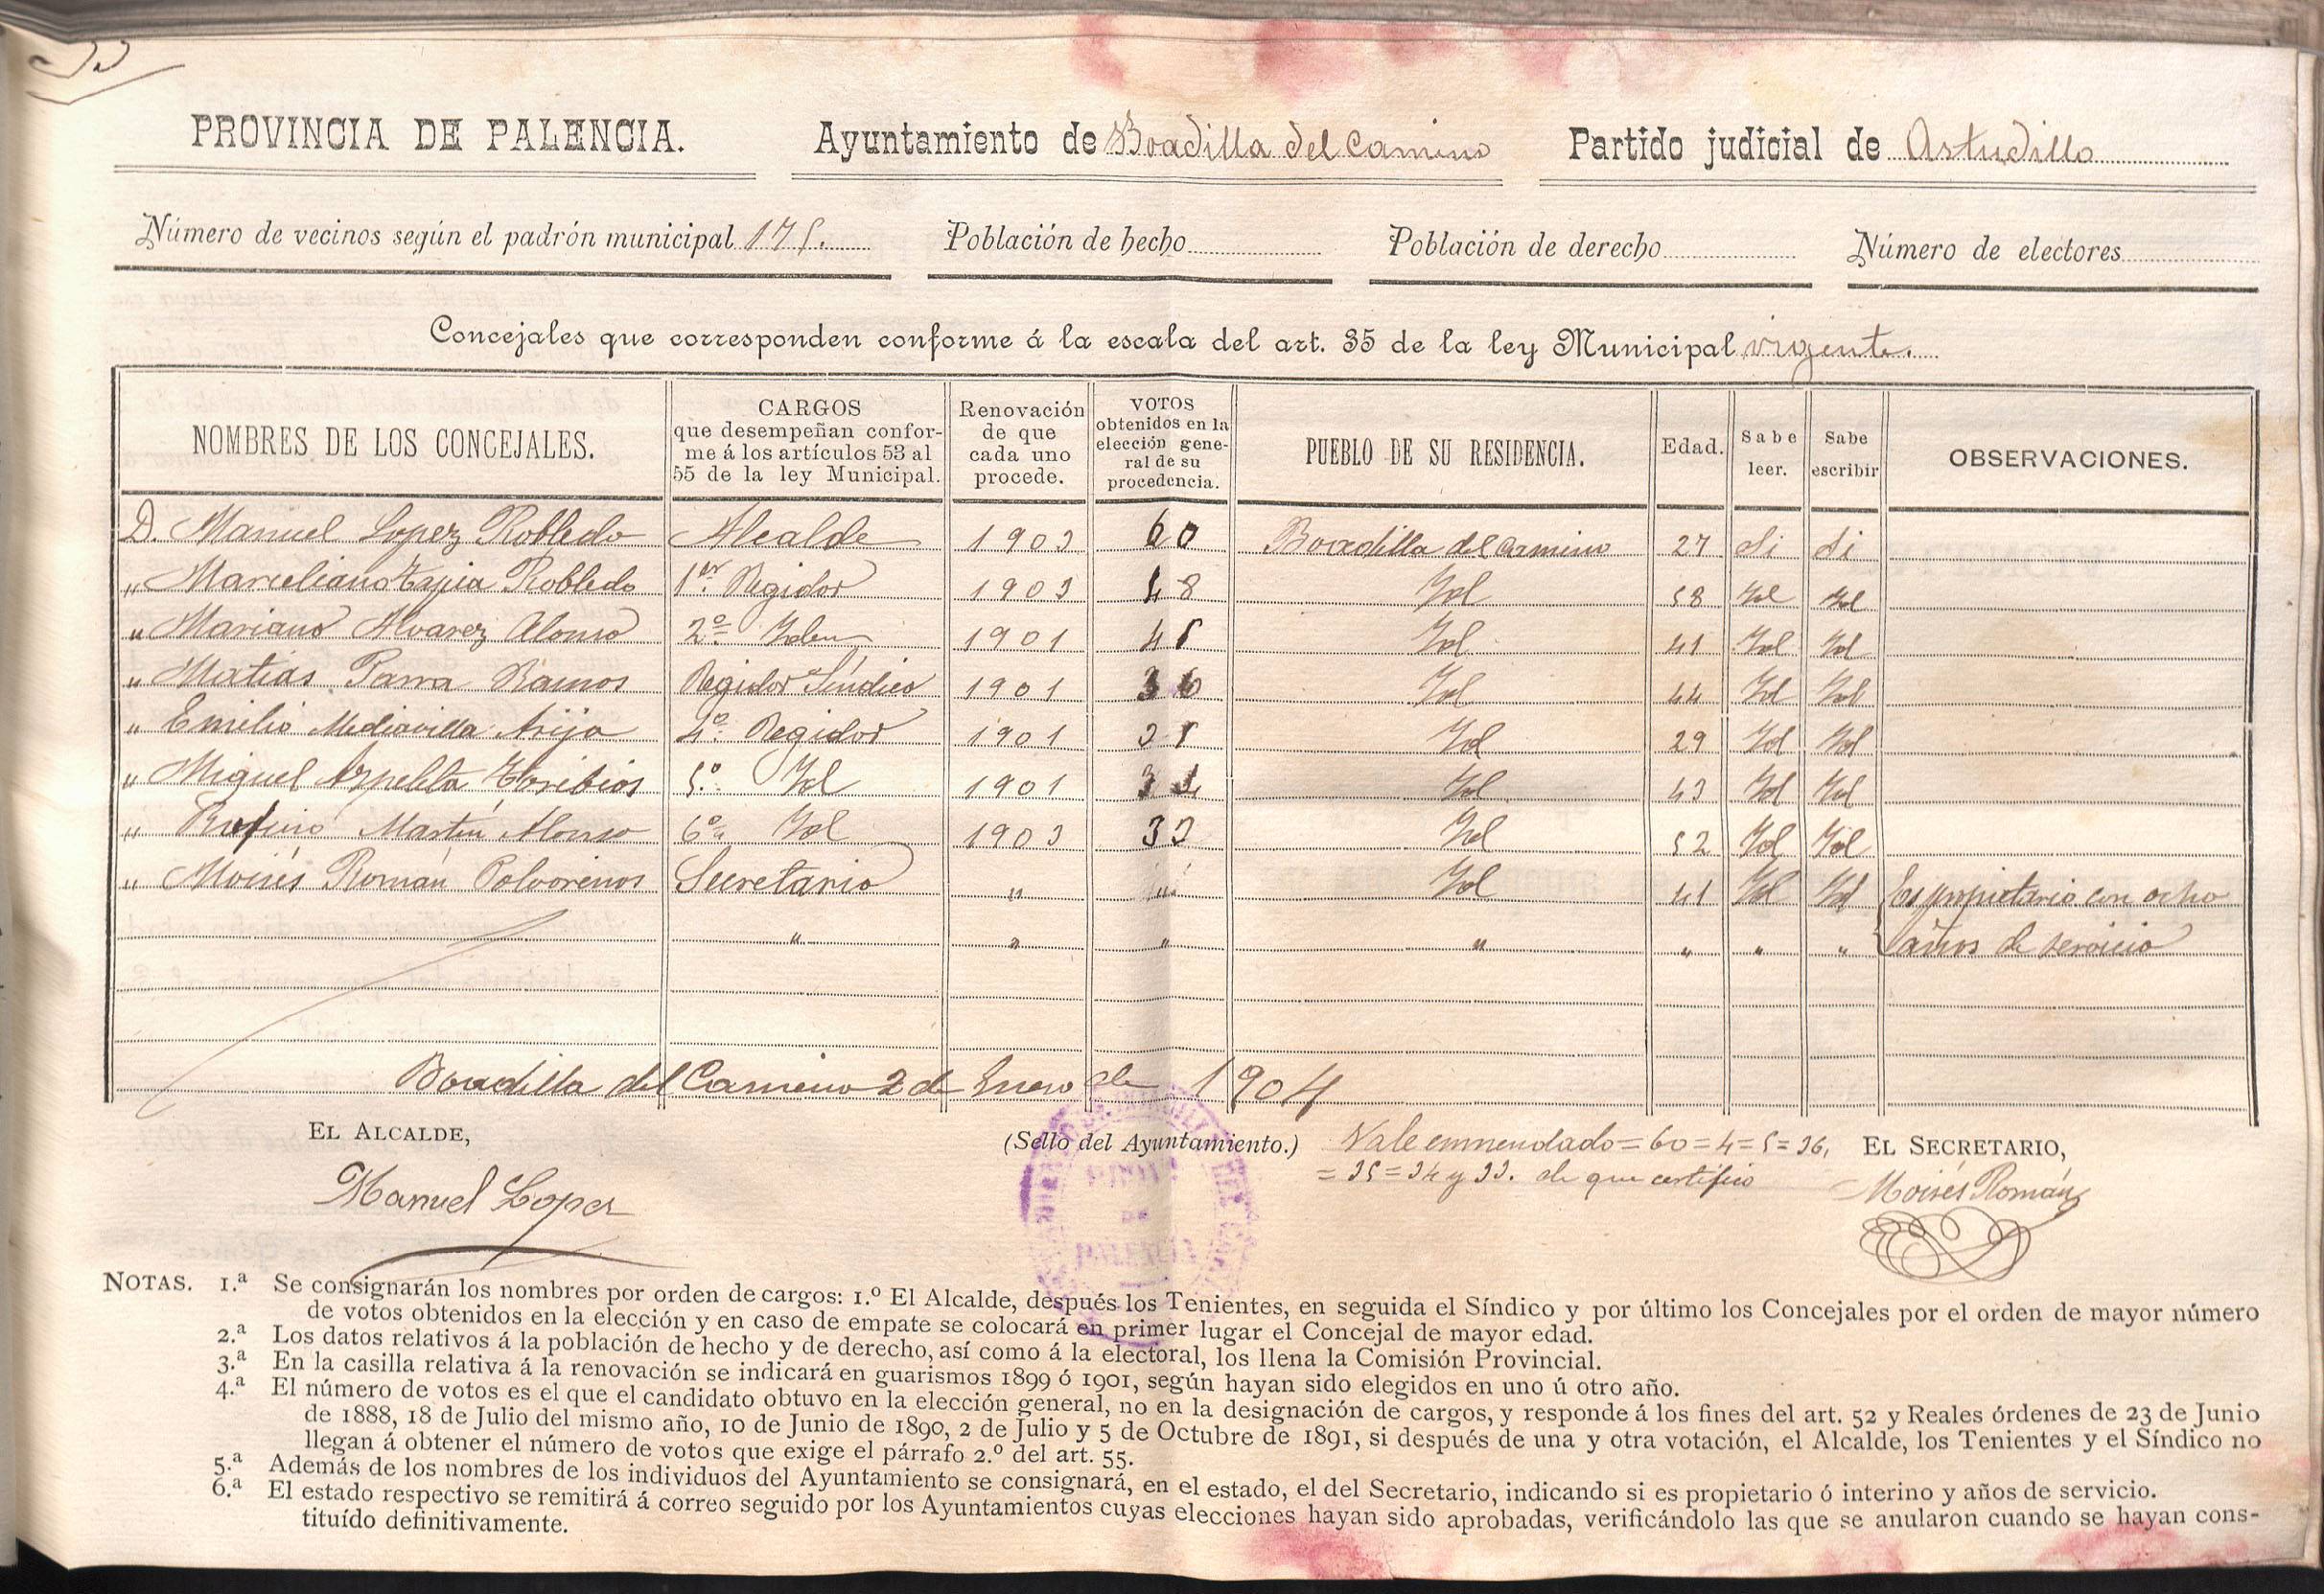 PROVINCIA DE PALENCIA. Ayuntamiento de Boadilla del Camino Partido judicial de Astudillo
Número de vecinos según el padrón municipal 175. Población de hecho Población de derecho Número de electores
Concejales que corresponden conforme á la escala del art. 35 de la ley Municipal vigente.
NOMBRES DE LOS CONCEJALES. CARGOS que desempeñan conforme á los artículos 53 al 55 de la ley Municipal. Renovación de que cada uno procede. VOTOS obtenidos en la elección general de su procedencia. PUEBLO DE SU RESIDENCIA. Edad. Sabe leer. Sabe escribir OBSERVACIONES.
D. Manuel Lopez Robledo Alcalde 1903 60 Boadilla del Camino 27 Si Si
„ Marceliano Tapia Robledo 1er. Regidor 1903 48 Yd 58 Yd Yd
„ Mariano Alvarez Alonso 2º Idem 1901 45 Yd 41 Yd Yd
„ Matias Parra Ramos Regidor Síndico 1901 36 Yd 44 Yd Yd
„ Emilio Mediavilla Arija 4º Regidor 1901 35 Yd 29 Yd Yd
„ Miguel Azpeleta Toribios 5º Yd 1901 34 Yd 43 Yd Yd
„ Rufino Martin Alonso 6º Yd 1903 33 Yd 52 Yd Yd
„ Moisés Román Polvorinos Secretario „ „ Yd 41 Yd Yd Es propietario con ocho
„ „ „ „ „ „ „ años de servicio
Boadilla del Camino 2 de Enero de 1904
EL ALCALDE, (Sello del Ayuntamiento.) Vale enmendado = 60 = 4 = 5 = 36, EL SECRETARIO,
= 35 = 34 y 33. de que certifico
Manuel Lopez Moisés Román
PROVª
DE
PALENCIA
NOTAS. 1.ª Se consignarán los nombres por orden de cargos: 1.º El Alcalde, después los Tenientes, en seguida el Síndico y por último los Concejales por el orden de mayor número
de votos obtenidos en la elección y en caso de empate se colocará en primer lugar el Concejal de mayor edad.
2.ª Los datos relativos á la población de hecho y de derecho, así como á la electoral, los llena la Comisión Provincial.
3.ª En la casilla relativa á la renovación se indicará en guarismos 1899 ó 1901, según hayan sido elegidos en uno ú otro año.
4.ª El número de votos es el que el candidato obtuvo en la elección general, no en la designación de cargos, y responde á los fines del art. 52 y Reales órdenes de 23 de Junio
de 1888, 18 de Julio del mismo año, 10 de Junio de 1890, 2 de Julio y 5 de Octubre de 1891, si después de una y otra votación, el Alcalde, los Tenientes y el Síndico no
llegan á obtener el número de votos que exige el párrafo 2.º del art. 55.
5.ª Además de los nombres de los individuos del Ayuntamiento se consignará, en el estado, el del Secretario, indicando si es propietario ó interino y años de servicio.
6.ª El estado respectivo se remitirá á correo seguido por los Ayuntamientos cuyas elecciones hayan sido aprobadas, verificándolo las que se anularon cuando se hayan cons-
tituído definitivamente.